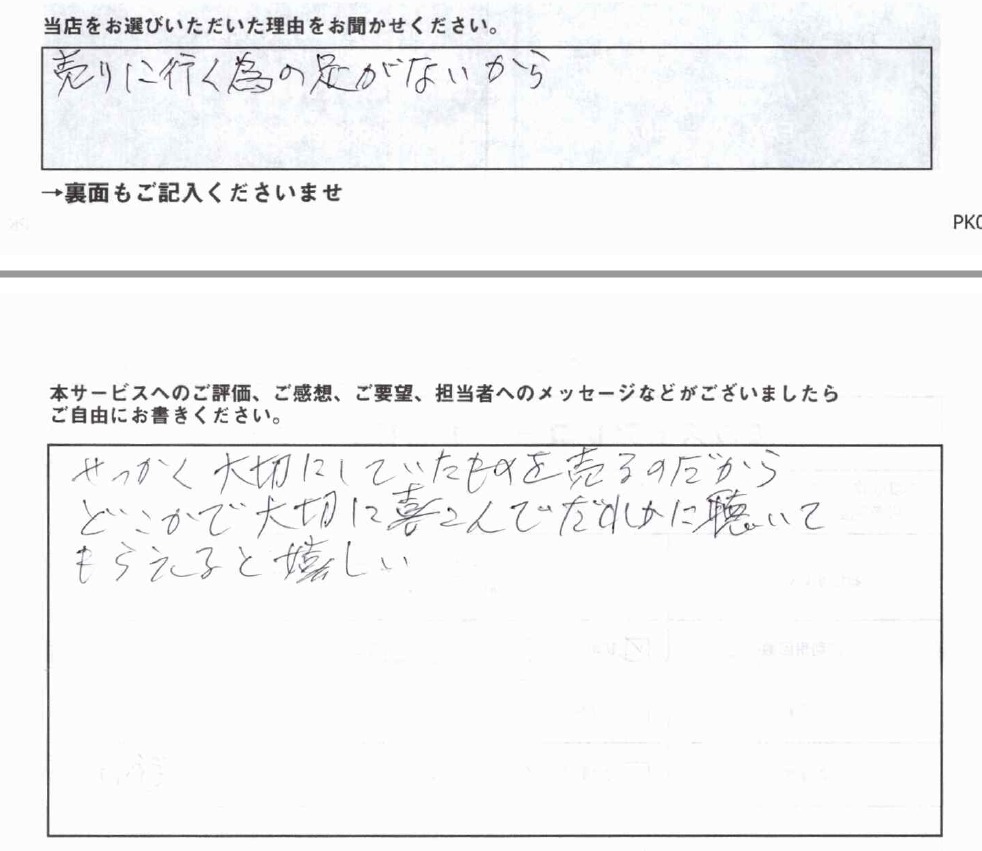 当店をお選びいただいた理由をお聞かせください。
売りに行く為の足がないから
→裏面もご記入くださいませ
PK0
本サービスへのご評価、ご感想、ご要望、担当者へのメッセージなどがございましたら
ご自由にお書きください。
せっかく大切にしていたものを売るのだから
どこかで大切に喜こんでだれかに聴いて
もらえると嬉しい